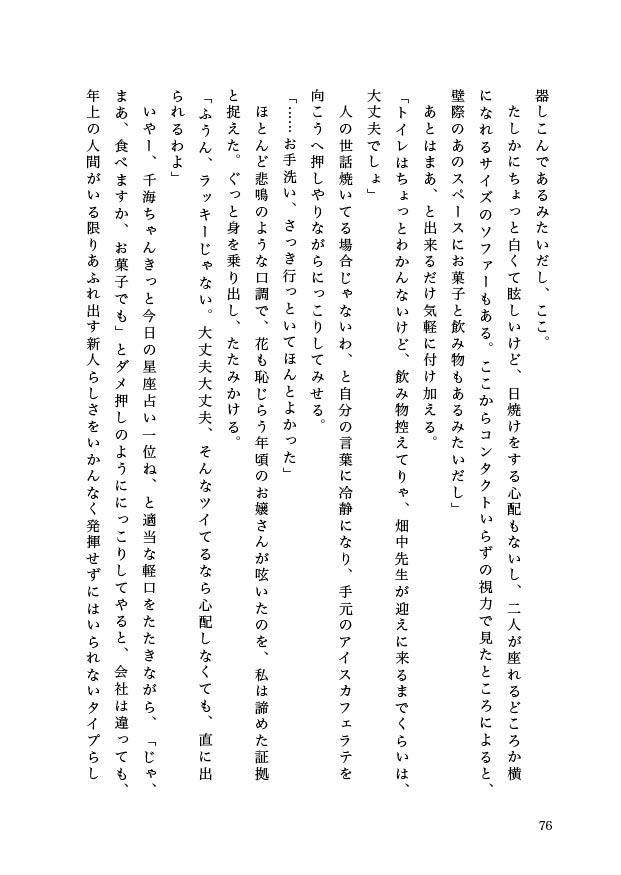 器しこんであるみたいだし、ここ。
たしかにちょっと白くて眩しいけど、日焼けをする心配もないし、二人が座れるどころか横
になれるサイズのソファーもある。ここからコンタクトいらずの視力で見たところによると、
壁際のあのスペースにお菓子と飲み物もあるみたいだし」
あとはまあ、と出来るだけ気軽に付け加える。
「トイレはちょっとわかんないけど、飲み物控えてりゃ、畑中先生が迎えに来るまでくらいは、
大丈夫でしょ」
人の世話焼いてる場合じゃないわ、と自分の言葉に冷静になり、手元のアイスカフェラテを
向こうへ押しやりながらにっこりしてみせる。
「……お手洗い、さっき行っといてほんとよかった」
ほとんど悲鳴のような口調で、花も恥じらう年頃のお嬢さんが呟いたのを、私は諦めた証拠
と捉えた。ぐっと身を乗り出し、たたみかける。
「ふうん、ラッキーじゃない。大丈夫大丈夫、そんなツイてるなら心配しなくても、直に出
られるわよ」
いやー、千海ちゃんきっと今日の星座占い一位ね、と適当な軽口をたたきながら、「じゃ、
まあ、食べますか、お菓子でも」とダメ押しのようににっこりしてやると、会社は違っても、
年上の人間がいる限りあふれ出す新人らしさをいかんなく発揮せずにはいられないタイプらし
76